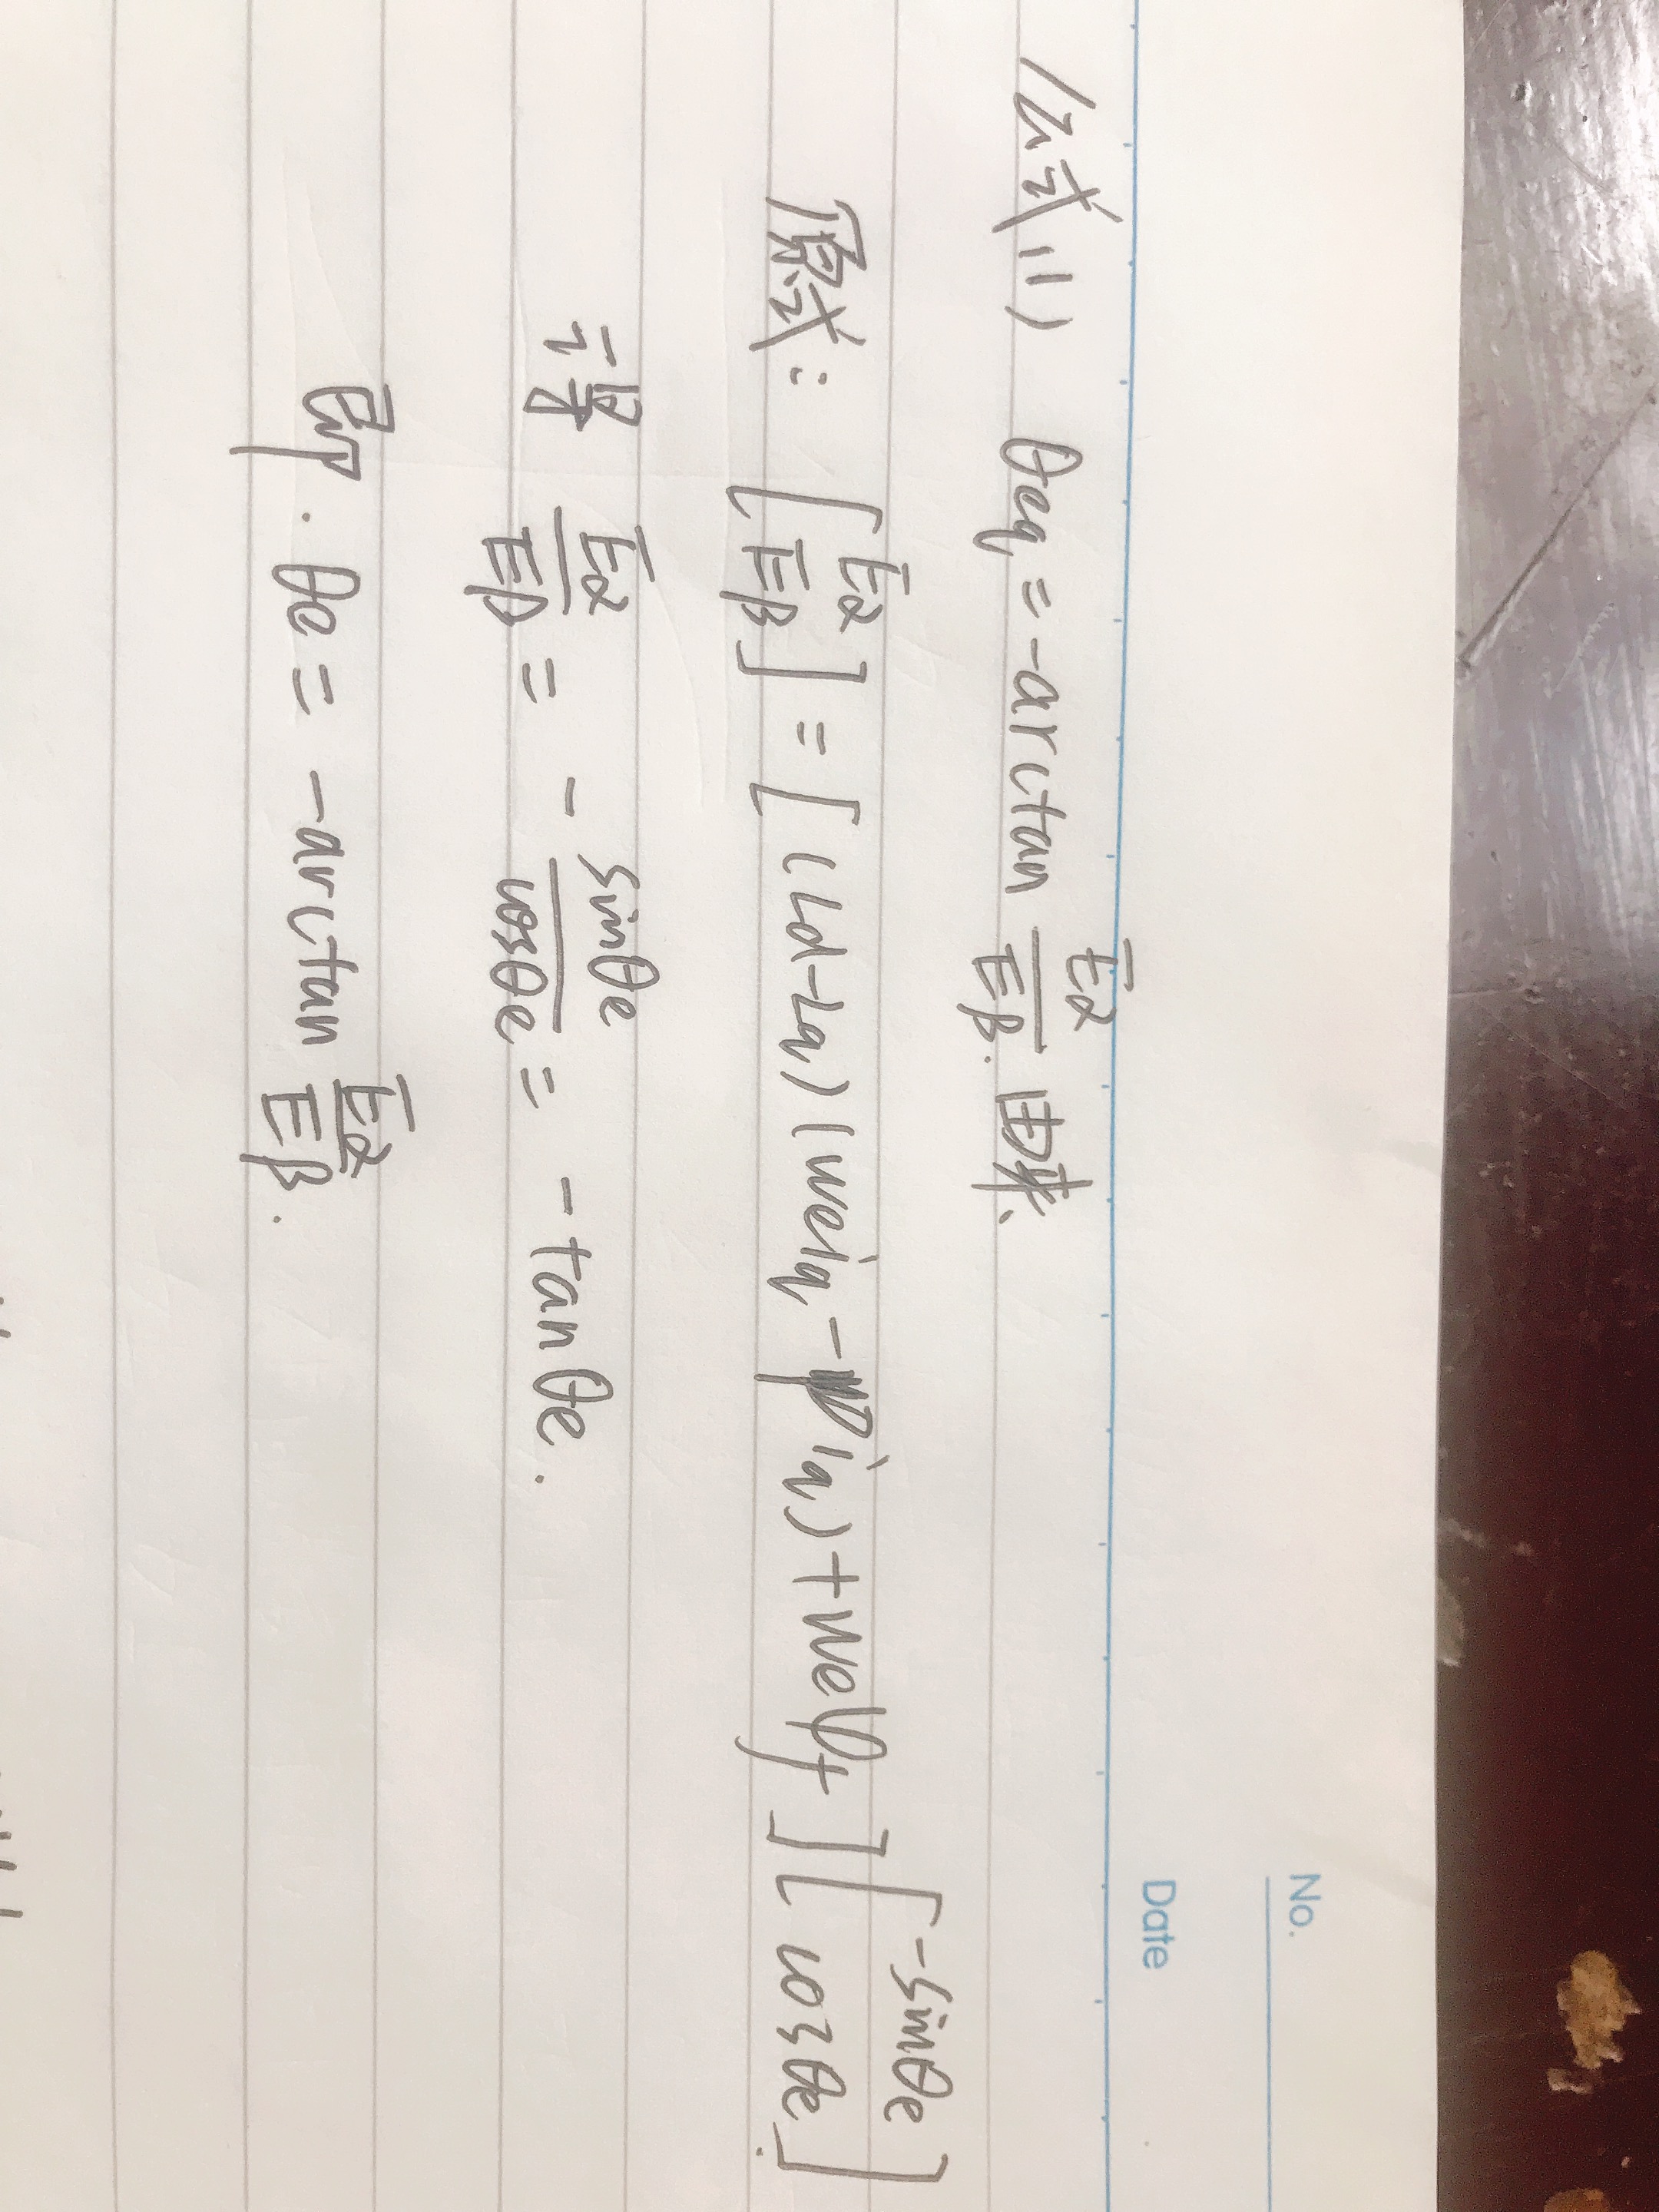 No.
Date
公式(1) θeq = -arctan Eα/Eβ. 由来.
原式: [Eα Eβ] = [(Ld-Lq)(ωeiq-piq)+ωeψf][-sinθe cosθe]
得 Eα/Eβ = - sinθe/cosθe = -tanθe.
即. θe = -arctan Eα/Eβ.